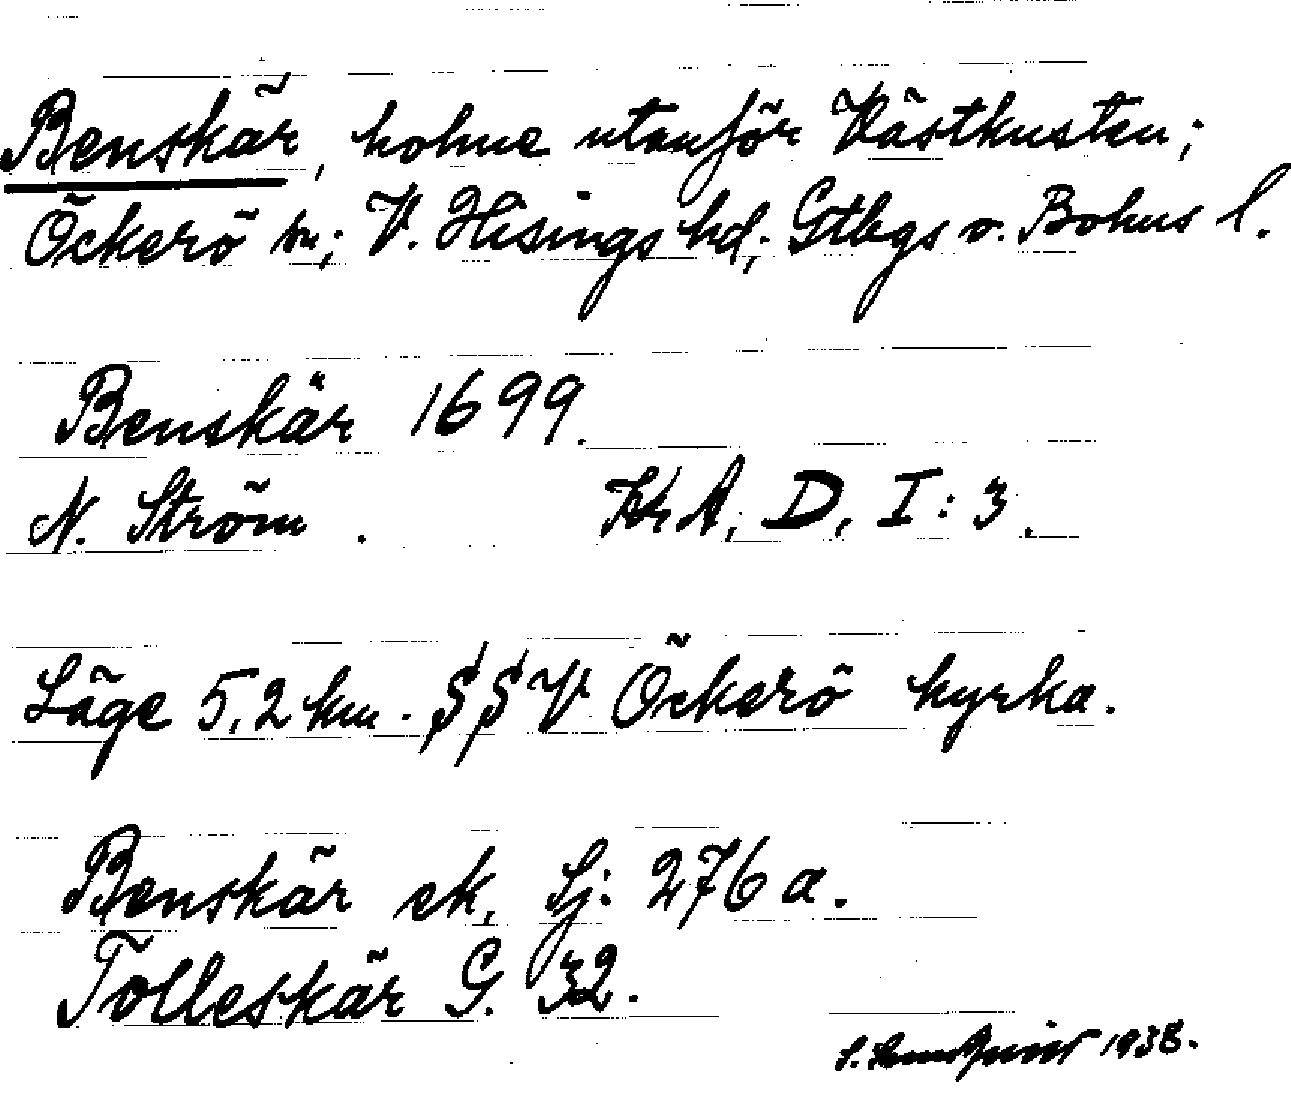 Benskär, holme utanför Västkusten;
Öckerö sn; V. Hisings hd; Gtbgs o. Bohus l.
Benskär 1699.
N. Ström. KrA, D, I: 3.
Läge 5,2 km. SSV Öckerö kyrka.
Benskär ek, Sj: 276 a.
Tolleskär G. 32.
S. 1938.